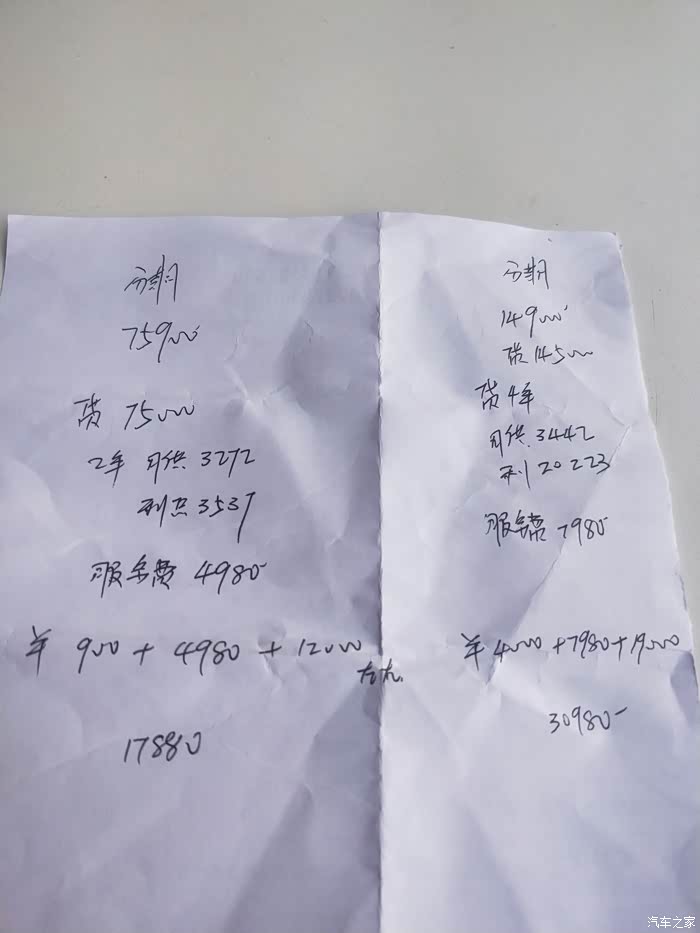 分期
75900
贷 75000
2年 月供 3272
利息3537
服务费 4980
¥ 900 + 4980 + 12000
左右.
17880
分期
149000
贷 145000
贷 4年
月供 3442
利 20223
服务费 7980
¥ 4000 + 7980 + 19000
30980
汽车之家